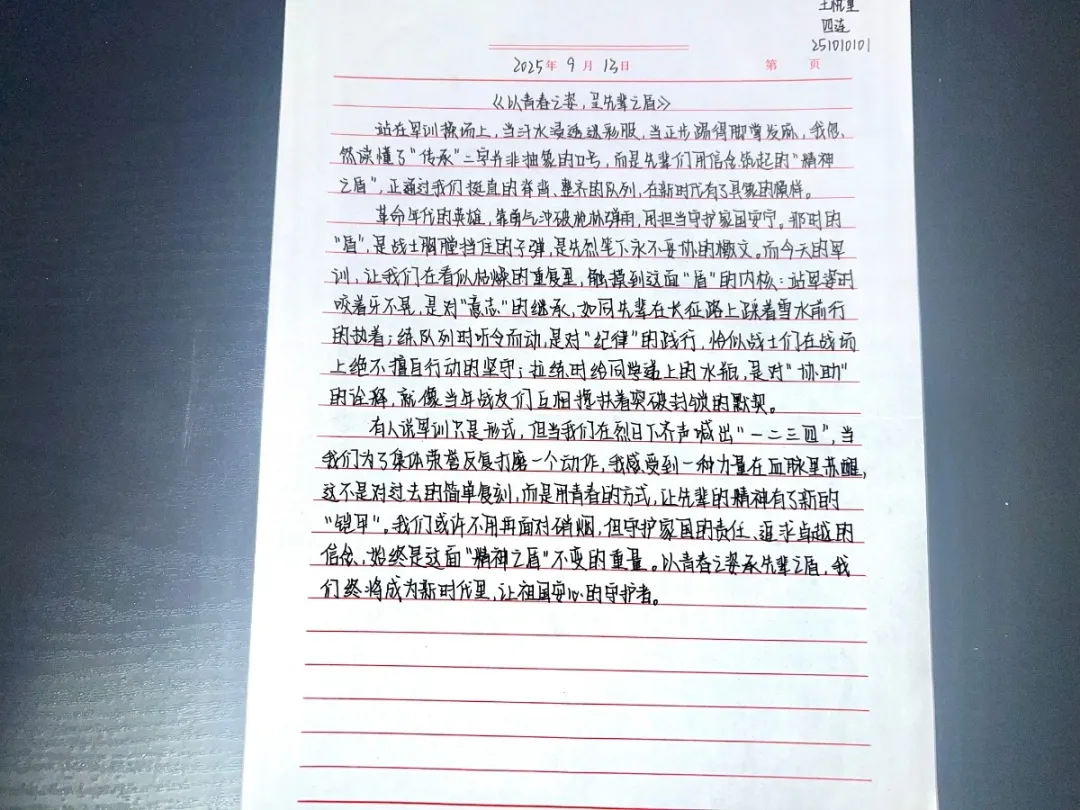 四连
251010101
2025年 9 月 13日 第 页
《以青春之姿,呈先辈之盾》
站在军训操场上,当汗水浸透迷彩服,当正步踢得脚掌发麻,我忽
然读懂了“传承”二字并非抽象的口号,而是先辈们用信念筑起的“精神
之盾”,正通过我们挺直的脊背、整齐的队列,在新时代有了具象的模样。
革命年代的英雄,靠勇气冲破枪林弹雨,用担当守护家国安宁。那时的
“盾”,是战士胸膛挡住的子弹,是先烈笔下永不妥协的檄文。而今天的军
训,让我们在看似枯燥的重复里,触摸到这面“盾”的内核:站军姿时
咬着牙不晃,是对“意志”的继承,如同先辈在长征路上踩着雪水前行
的执着;练队列时听令而动,是对“纪律”的践行,恰似战士们在战场
上绝不擅自行动的坚守;拉练时给同学递上的水瓶,是对“协助”
的诠释,就像当年战友们互相搀扶着突破封锁的默契。
有人说军训只是形式,但当我们在烈日下齐声喊出“一二三四”,当
我们为了集体荣誉反复打磨一个动作,我感受到一种力量在血脉里苏醒,
这不是对过去的简单复刻,而是用青春的方式,让先辈的精神有了新的
“铠甲”。我们或许不用再面对硝烟,但守护家国的责任、追求卓越的
信念,始终是这面“精神之盾”不变的重量。以青春之姿承先辈之盾,我
们终将成为新时代里,让祖国安心的守护者。